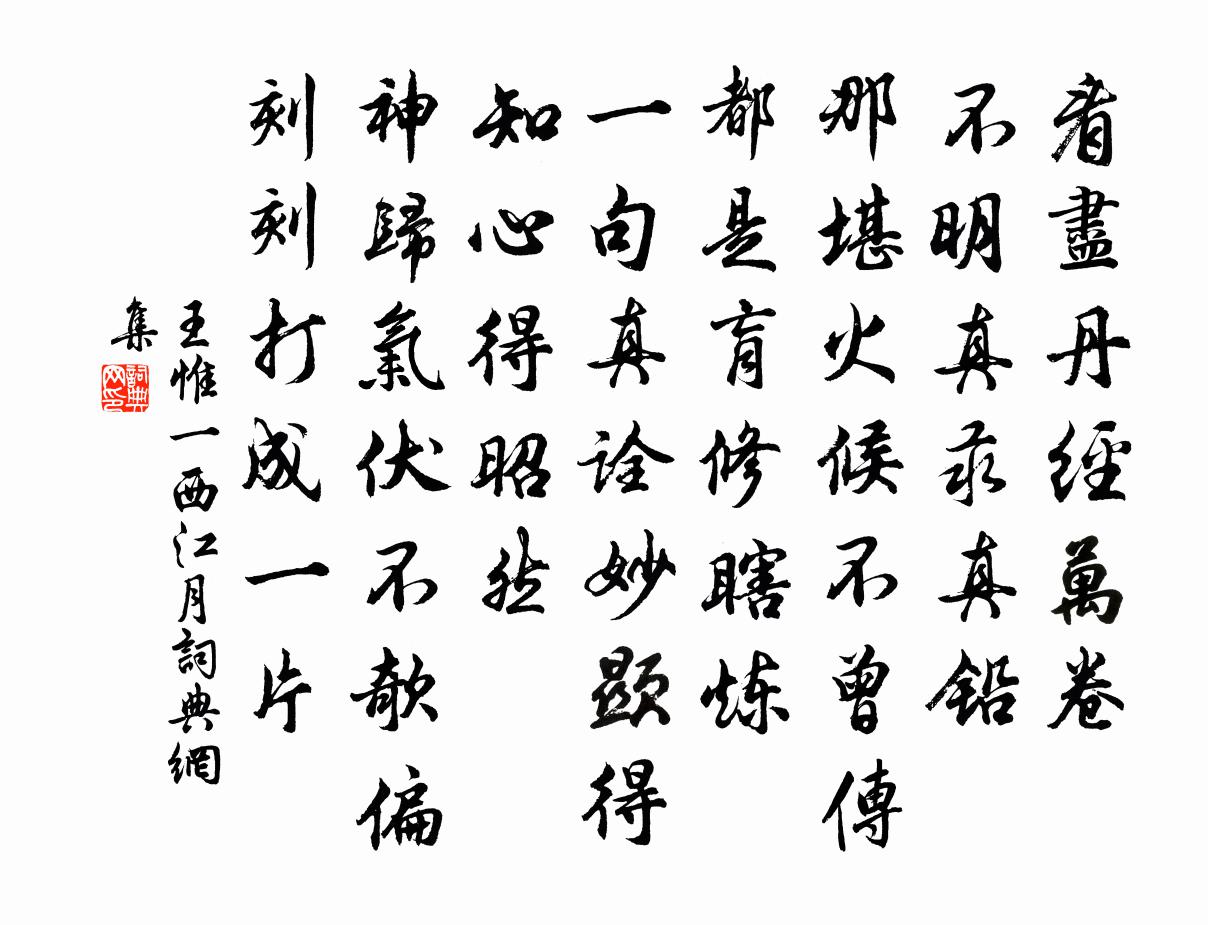 看盡丹經萬卷
不明真汞真鉛
那堪火候不曾傳
都是盲修瞎炼
一句真詮妙顯得
知心得昭然
神歸氣伏不欹偏
刻刻打成一片
王惟一西江月詞典網
集
詞典網印